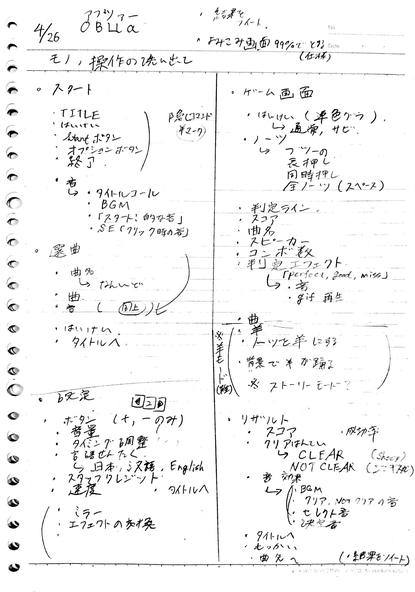 4/26
アプツァー
OBLIα
・結果をツイート
・よみこみ画面99%でとまる
(仕様)
モノ、操作の洗い出し
・スタート
・TITLE
・はいけい
・Startボタン
・オプションボタン
・終了
・音
↳・タイトルコール
・BGM
・「スタート!的な音」
・SE(クリック時の音)
・選曲
・曲名
↳なんいど
・曲
・音(同上)
・はいけい
・タイトルへ
・設定
・ボタン(+,-のみ)
・音量
・タイミング調整
・言語せんたく
↳日本,漢語,English
・スタッフクレジット
・速度 ・タイトルへ
・ミラー
・エフェクトの交換
・ゲーム画面
・はいけい(単色グラ)
↳通常,サビ
・ノーツ
↳フツーの
長押し
同時押し
全ノーツ(スペース)
・判定ライン
・スコア
・曲名
・スピーカー
・コンボ数
・判定エフェクト
↳「perfect, good, miss」
・音
・gif再生
・曲
※羊モード
・羊
ノーツを羊にする
背景で羊が踊る
※ストーリーモード?
・リザルト
・スコア ・成功率
・クリアはんてい
↳CLEAR (Sheep)
NOT CLEAR
・音効果
↳・BGM
・クリア,Not クリアの音
・セレクト音
・決定音
・タイトルへ
・もっかい
・曲名へ (・結果をツイート)